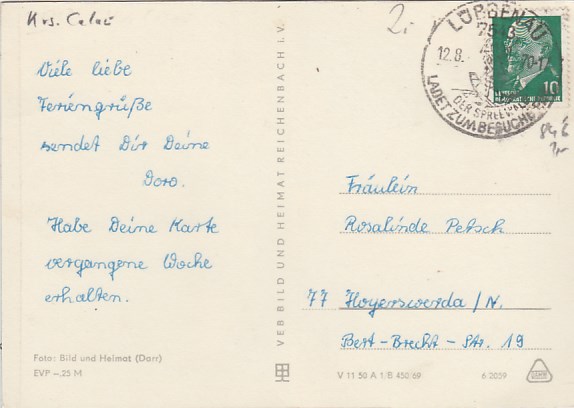 Krs. Calau
2,-
LÜBBENAU
12.8.
-70-1
DER SPREEWALD
LADET ZUM BESUCHE
10
Viele liebe
Feriengrüße
sendet Dir Deine
Doro.
Habe Deine Karte
vergangene Woche
erhalten.
Foto: Bild und Heimat (Darr)
EVP -,25 M
VEB BILD UND HEIMAT REICHENBACH I. V.
Fräulein
Rosalinde Petsch
77 Hoyerswerda / N.
Bert-Brecht-Str. 19
V 11 50 A 1/B 450/69
6 2059